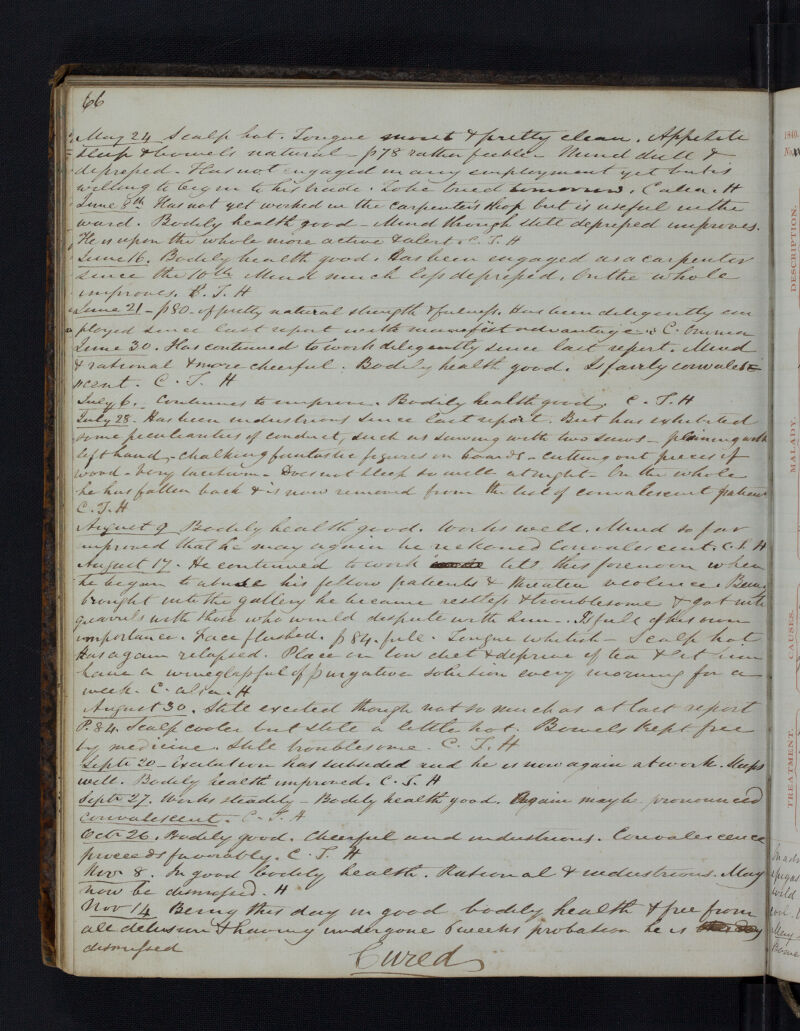 66
May 24 Scalp hot. Tongue moist & pretty clean. Appetite
sleep & bowels natural - p78 rather feeble - Mind dull &
depressed - Has not engaged in any employment yet but is
willing to begin to his trade. To be tried tomorrow. C alia. H
June 8th Has not yet worked in the carpenters shop but is useful in the
ward. Bodily health good - Mind though still depressed improves.
He is upon the whole more active & alert. C. T. H
June 16. Bodily health good. Has been engaged as a carpenter
since the 10th Mind much less depressed. On the whole
improves. C. T. H
June 21 - p80 - of pretty natural strength & fulness. Has been diligently em
ployed since last report with manifest advantage. C. omnia
June 30. Has continued to work diligently since last report. Mind
& rational & more cheerful. Bodily health good. Is fairly convales=
scent. C. T. H
July 6. Continues to improve. Bodily health good. C. T. H
July 28. Has been industrious since last report. But has exhibited
some peculiarities of conduct, such as sawing with two saws - planing with
left hand, - chalking fantastic figures on boards - cutting out pieces of
wood - Very taciturn - Does not sleep so well at night - On the whole
he has fallen back & is now removed from the list of convalescent patients
C. T. H
August 9 Bodily health good. Works well. Mind so far
improved that he may again be reckoned Convalescent. C. T. H
August 17. He continued to work till this forenoon when
he began to abuse his fellow patients & threaten violence. Being
brought into the gallery he became restless & troublesome & got into
quarrels with those who would dispute with him - Is full of his own
importance. Face flushed. p 84. full. Tongue whitish - Scalp hot
Has again relapsed. Place on low diet & deprive of tea & let him
have a wineglassful of purgative solution every morning for a
week. C. alia. H
August 30. Still excited though not so much as at last report
P. 84. Scalp cooler but still a little hot. Bowels kept free
by medicine. Still troublesome. C. T. H
Septr 20 - Excitation has subsided and he is now again at work. Sleeps
well. Bodily health improved. C. T. H
Septr 27. Works steadily - Bodily health good. Again may be pronounced
convalescent. C. T. H
Octr 26. Bodily good. Cheerful and industrious. Convalescence
proceeds favorably. C. T. H
Nov 8. In good bodily health. Rational & industrious. May
now be dismissed. H
Nov 14 Being this day in good bodily health & free from
all delusion & having undergone 6 weeks probation he is
dismissed
Cured
1840.
No.
DESCRIPTION.
MALADY.
CAUSES.
TREATMENT.
May